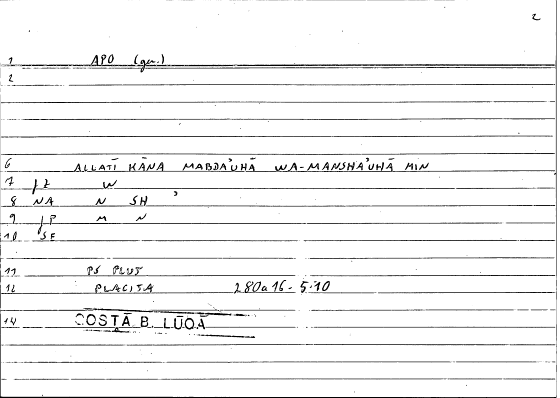 2
1 APO (gen.)
2
6 ALLATĪ KĀNA MABDAʾUHĀ WA-MANSHAʾUHĀ MIN
7 /Z W
8 NA N SH ʾ
9 /P M N
10 SF
11 PS PLUT
12 PLACITA 280a16 - 5.10
14 QOSṬĀ B. LŪQĀ